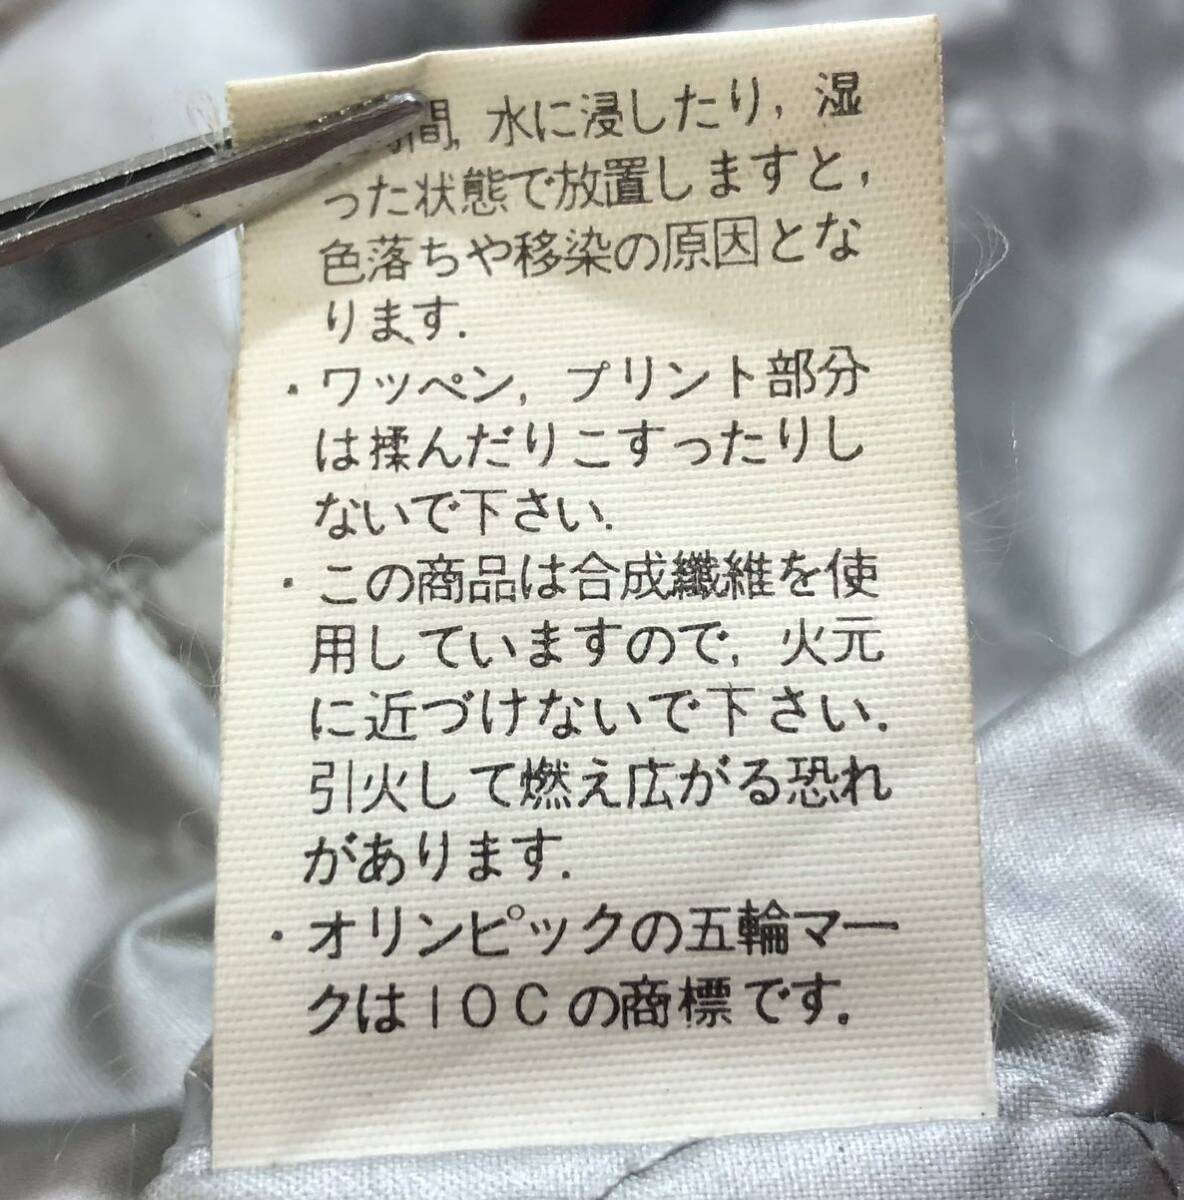 間, 水に浸したり, 湿
った状態で放置しますと,
色落ちや移染の原因とな
ります.
・ワッペン, プリント部分
は揉んだりこすったりし
ないで下さい.
・この商品は合成繊維を使
用していますので, 火元
に近づけないで下さい.
引火して燃え広がる恐れ
があります.
・オリンピックの五輪マー
クはIOCの商標です.